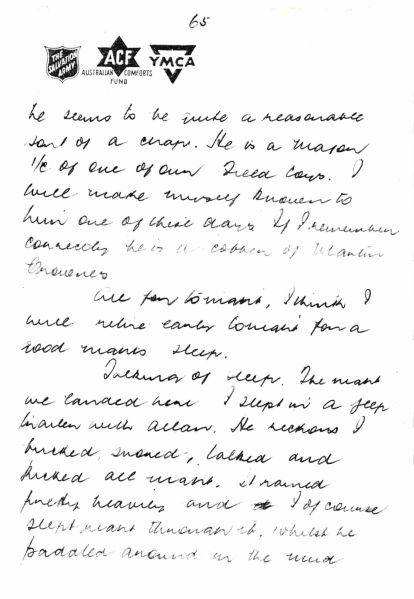 65
THE SALVATION ARMY
ACF
AUSTRALIAN COMFORTS FUND
YMCA
he seems to be quite a reasonable
sort of a chap. He is a major
i/c of one of our Field Coys. I
will make myself known to
him one of these days. If I remember
correctly he is a cobber of Martin
All for tonight, I think I
will retire early tonight for a
good nights sleep.
Talking of sleep. The night
we landed here I slept in a jeep
trailer with Allan. He reckons I
bucked, snored, talked and
kicked all night. It rained
pretty heavily and I of course
slept right through it, whilst he
paddled around in the mud